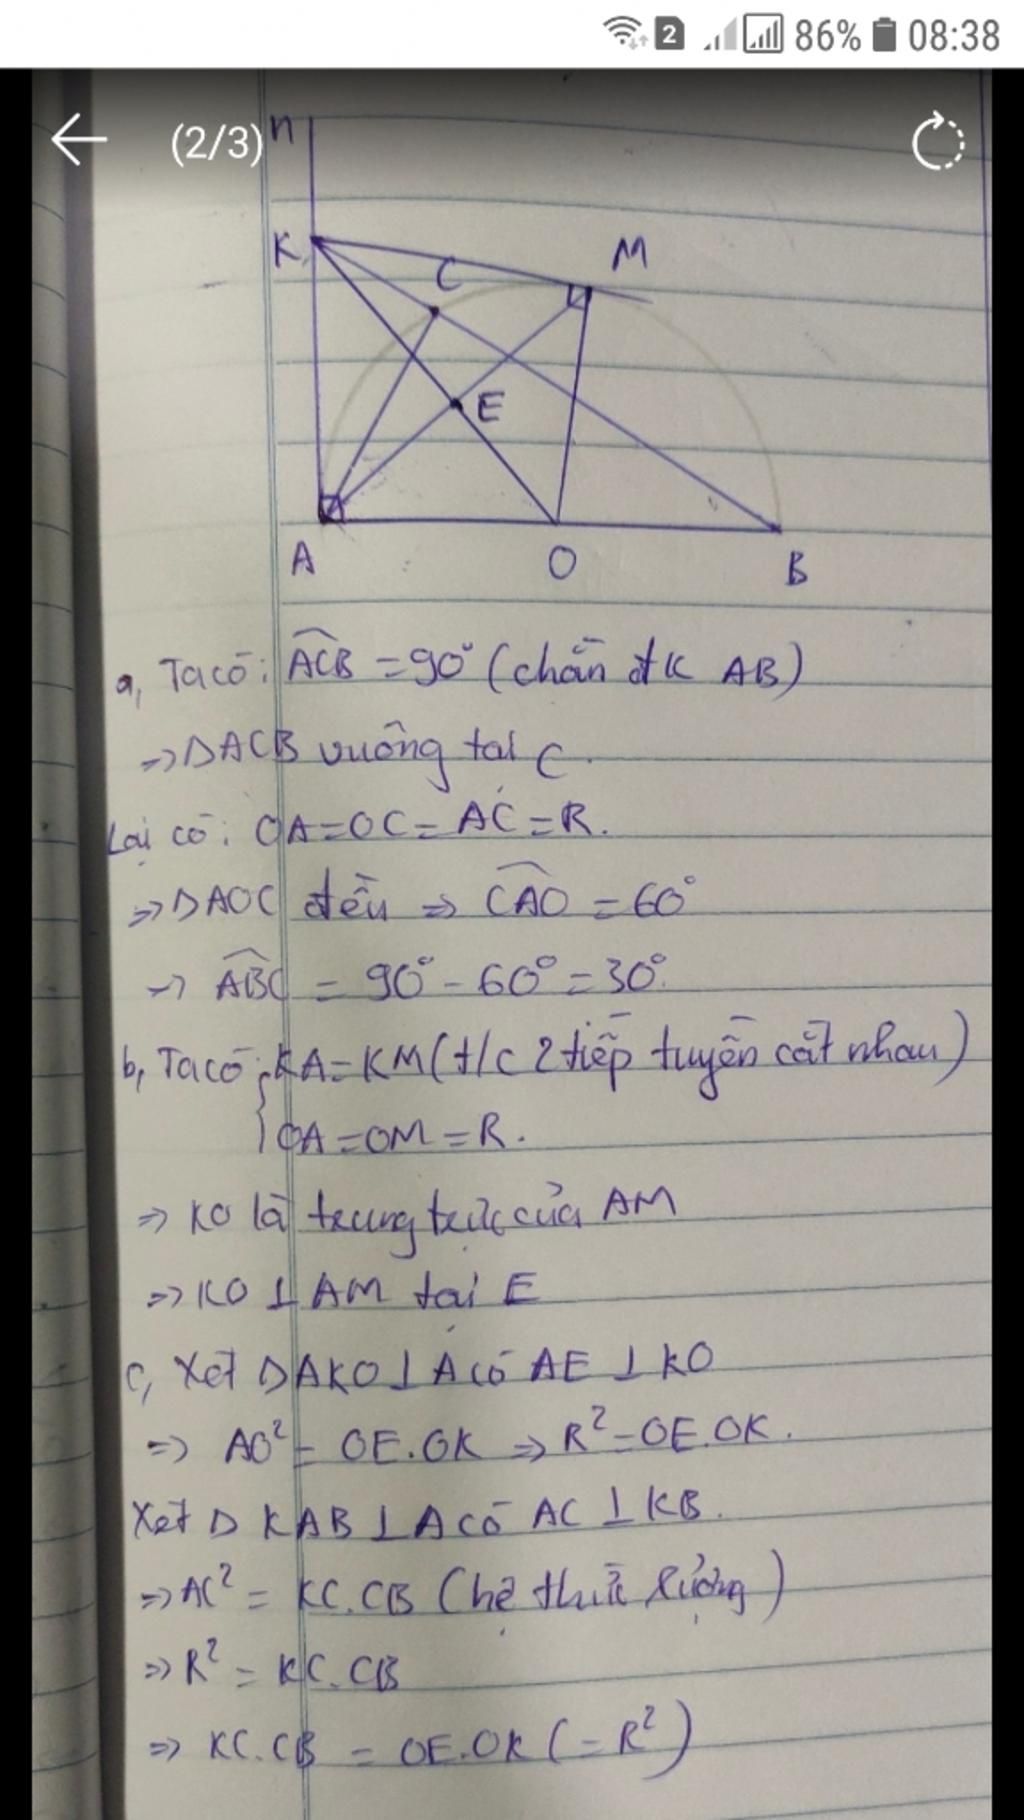 2 86% 08:38
(2/3) n
K
C
M
E
A
O
B
a, Ta có: ACB = 90° (chắn đk AB)
=> ΔACB vuông tại C.
Lại có: OA=OC=AC=R.
=> ΔAOC đều => CAO = 60°
-> ABC = 90° - 60° = 30°.
b, Ta có: KA=KM (t/c 2 tiếp tuyến cắt nhau)
OA=OM=R.
=> KO là trung trực của AM
=> KO ⊥ AM tại E
c, Xét ΔAKO ⊥ A có AE ⊥ KO
=> AO² = OE.OK => R²=OE.OK.
Xét Δ KAB ⊥ A có AC ⊥ KB.
=> AC² = KC.CB (hệ thức lượng)
=> R² = KC.CB
=> KC.CB = OE.OK (=R²)